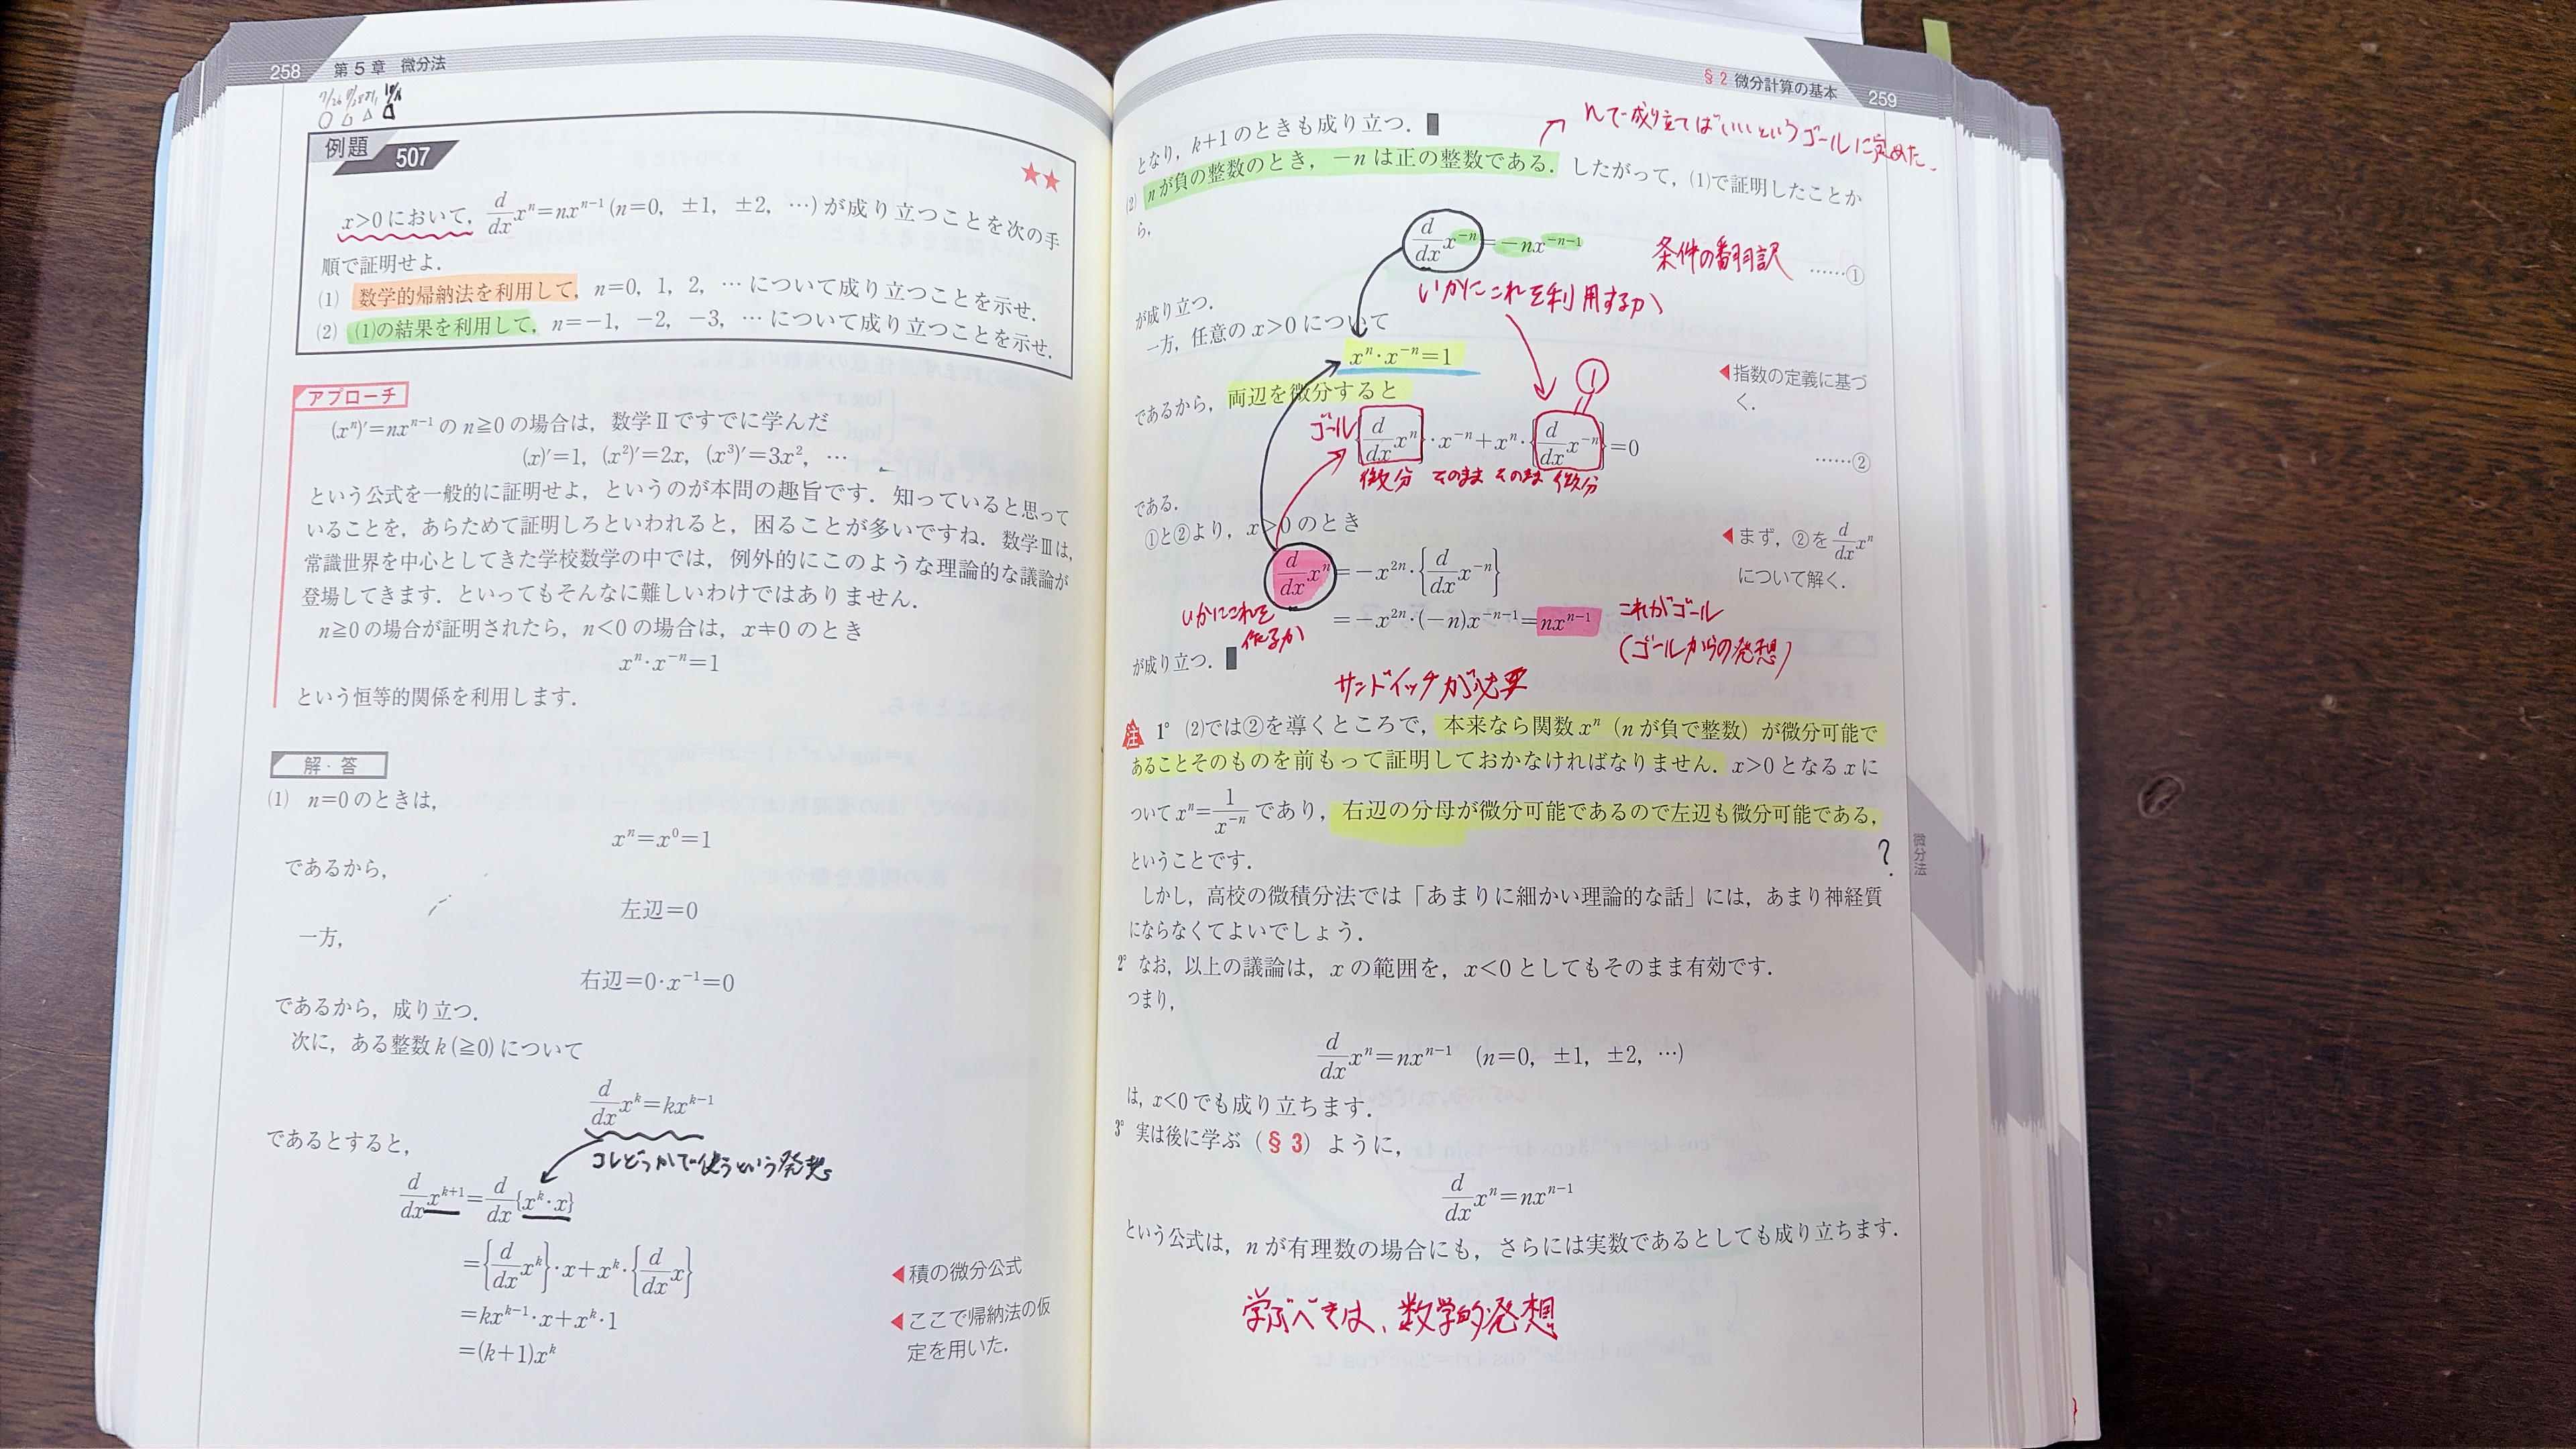 258 第5章 微分法
7/26
例題 507 ★★
x>0において, d/dx xⁿ=nxⁿ⁻¹(n=0, ±1, ±2, …)が成り立つことを次の手
順で証明せよ.
(1) 数学的帰納法を利用して, n=0, 1, 2, …について成り立つことを示せ.
(2) (1)の結果を利用して, n=−1, −2, −3, …について成り立つことを示せ.
アプローチ
(xⁿ)′=nxⁿ⁻¹のn≧0の場合は, 数学Ⅱですでに学んだ
(x)′=1, (x²)′=2x, (x³)′=3x², …
という公式を一般的に証明せよ, というのが本問の趣旨です. 知っていると思って
いることを, あらためて証明しろといわれると, 困ることが多いですね. 数学Ⅲは,
常識世界を中心としてきた学校数学の中では, 例外的にこのような理論的な議論が
登場してきます. といってもそんなに難しいわけではありません.
n≧0の場合が証明されたら, n<0の場合は, x≠0のとき
xⁿ·x⁻ⁿ=1
という恒等的関係を利用します.
解・答
(1) n=0のときは,
xⁿ=x⁰=1
であるから,
左辺=0
一方,
右辺=0·x⁻¹=0
であるから, 成り立つ.
次に, ある整数k(≧0)について
d/dx xᵏ=kxᵏ⁻¹
であるとすると,
コレどうかで使うという発想。
d/dx xᵏ⁺¹=d/dx{xᵏ·x}
={d/dx xᵏ}·x+xᵏ·{d/dx x}
◀積の微分公式
=kxᵏ⁻¹·x+xᵏ·1
◀ここで帰納法の仮
定を用いた.
=(k+1)xᵏ
§2 微分計算の基本 259
nで成り立てばいいというゴールに定めた.
となり, k+1のときも成り立つ. ▮
(2) nが負の整数のとき, −nは正の整数である. したがって, (1)で証明したことか
ら,
d/dx x⁻ⁿ=−nx⁻ⁿ⁻¹ ……①
条件の翻訳
いかにこれを利用するか
が成り立つ.
一方, 任意のx>0について
xⁿ·x⁻ⁿ=1
◀指数の定義に基づ
く.
であるから, 両辺を微分すると
①
ゴール
{d/dx xⁿ}·x⁻ⁿ+xⁿ·{d/dx x⁻ⁿ}=0 ……②
微分 そのまま そのまま 微分
である.
①と②より, x>0のとき
◀まず, ②をd/dx xⁿ
について解く.
d/dx xⁿ=−x²ⁿ·{d/dx x⁻ⁿ}
=−x²ⁿ·(−n)x⁻ⁿ⁻¹=nxⁿ⁻¹
いかにこれを
作るか
これがゴール
(ゴールからの発想)
が成り立つ. ▮
サンドイッチが必要
注 1° (2)では②を導くところで, 本来なら関数xⁿ(nが負で整数)が微分可能で
あることそのものを前もって証明しておかなければなりません. x>0となるxに
ついてxⁿ=1/x⁻ⁿであり, 右辺の分母が微分可能であるので左辺も微分可能である,
ということです. ?
しかし, 高校の微積分法では「あまりに細かい理論的な話」には, あまり神経質
にならなくてよいでしょう.
2° なお, 以上の議論は, xの範囲を, x<0としてもそのまま有効です.
つまり,
d/dx xⁿ=nxⁿ⁻¹ (n=0, ±1, ±2, …)
は, x<0でも成り立ちます.
3° 実は後に学ぶ(§3)ように,
d/dx xⁿ=nxⁿ⁻¹
という公式は, nが有理数の場合にも, さらには実数であるとしても成り立ちます.
学ぶべきは、数学的発想
微分法